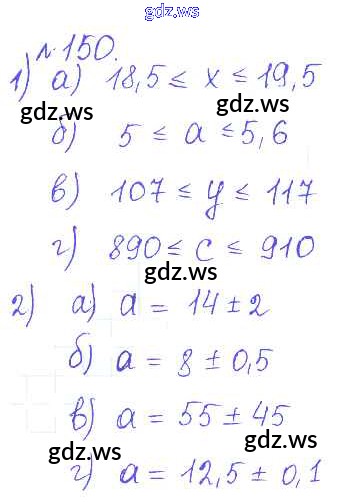 gdz.ws
№150.
1) а) 18,5 ≤ x ≤ 19,5
gdz.ws gdz.ws
б) 5 ≤ a ≤ 5,6
в) 107 ≤ y ≤ 117
г) 890 ≤ c ≤ 910
gdz.ws
2) а) a = 14 ± 2
б) a = 8 ± 0,5
в) a = 55 ± 45
gdz.ws gdz.ws
г) a = 12,5 ± 0,1